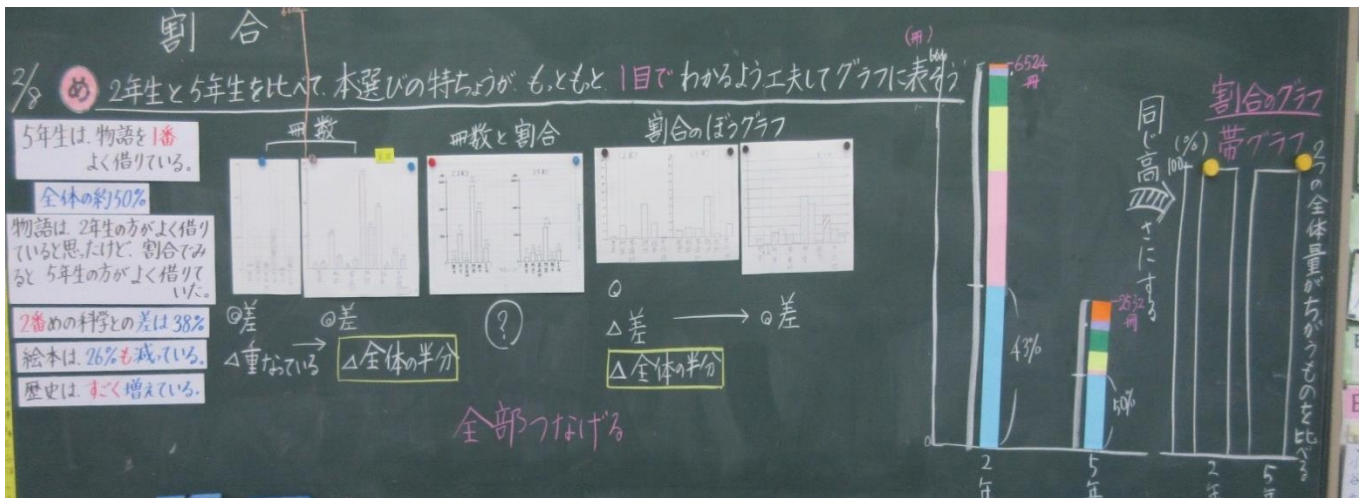 割合
2/8
め 2年生と5年生を比べて、本選びの特ちょうが、もっともっと 1目で わかるよう工夫してグラフに表そう
5年生は、物語を1番
よく借りている。
全体の約50%
物語は、2年生の方がよく借り
ていると思ったけど、割合でみ
ると5年生の方がよく借りて
いた。
2番めの科学との差は38%
絵本は、26%も減っている。
歴史は、すごく増えている。
冊数
◎差
△重なっている
→
◎差
△全体の半分
冊数と割合
?
割合のぼうグラフ
△差
△全体の半分
→
◎差
全部つなげる
(冊)
6524
冊
2532
冊
43%
50%
0
2年
5年
同じ高さにする
割合のグラフ
帯グラフ
(%)
100
2年
5年
2つの全体量がちがうものを比べる。